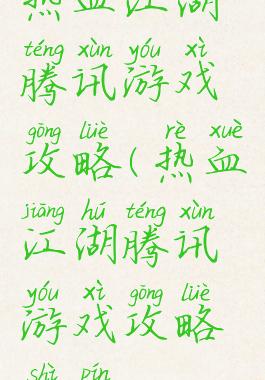 热血江湖
téng xùn yóu xì
腾讯游戏
gōng lüè rè xuè
攻略(热血
jiāng hú téng xùn
江湖腾讯
yóu xì gōng lüè
游戏攻略
shì pín